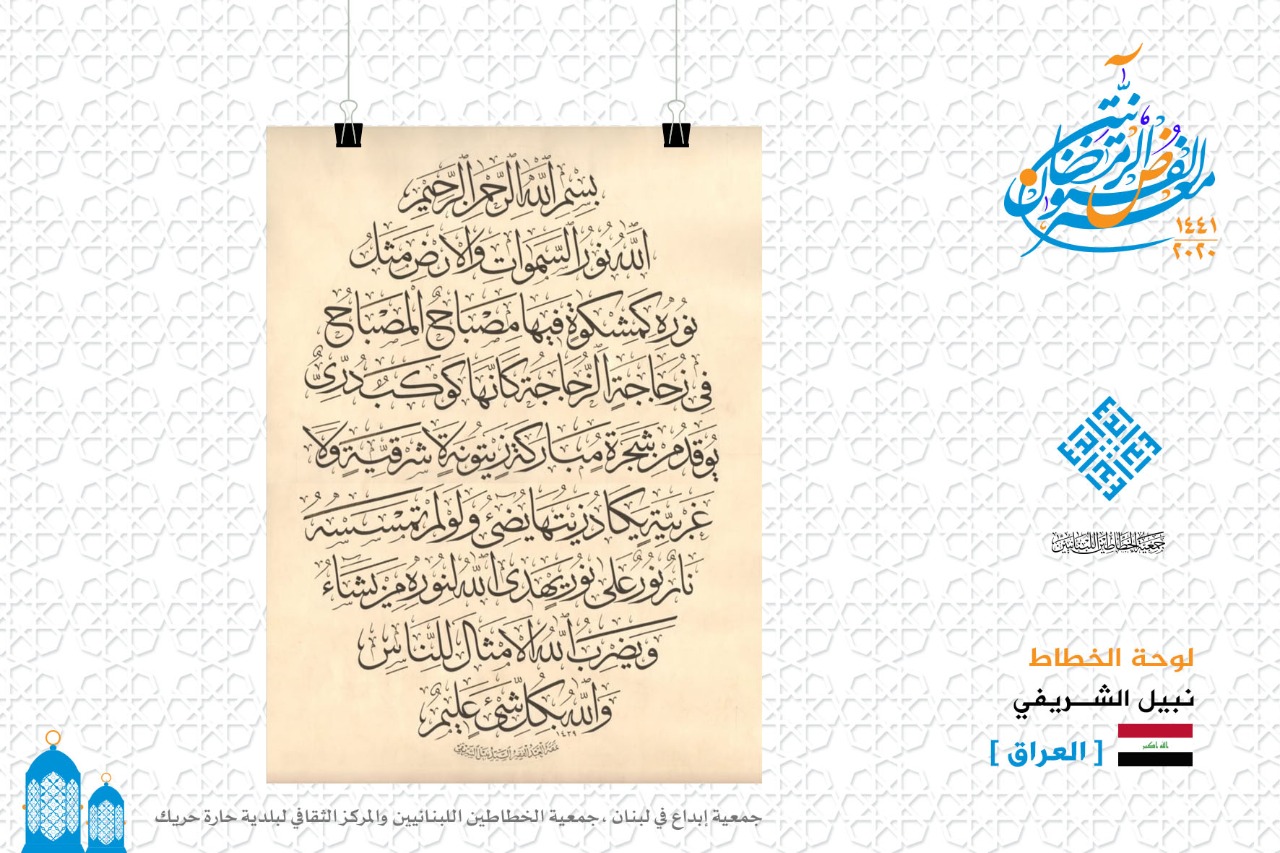 معرض الفنون الرمضانية
١٤٤١
٢٠٢٠
بسم الله الرحمن الرحيم
الله نور السموات والارض مثل
نوره كمشكوة فيها مصباح المصباح
فى زجاجة الزجاجة كانها كوكب درى
يوقد من شجرة مباركة زيتونة لا شرقية ولا
غربية يكاد زيتها يضئ ولو لم تمسسه
نار نور على نور يهدى الله لنوره من يشاء
ويضرب الله الامثال للناس
والله بكل شئ عليم
١٤٣٩
جمعية الخطاطين اللبنانيين
لوحة الخطاط
نبيل الشريفي
[ العراق ]
الله اكبر
جمعية إبداع في لبنان ، جمعية الخطاطين اللبنانيين والمركز الثقافي لبلدية حارة حريك